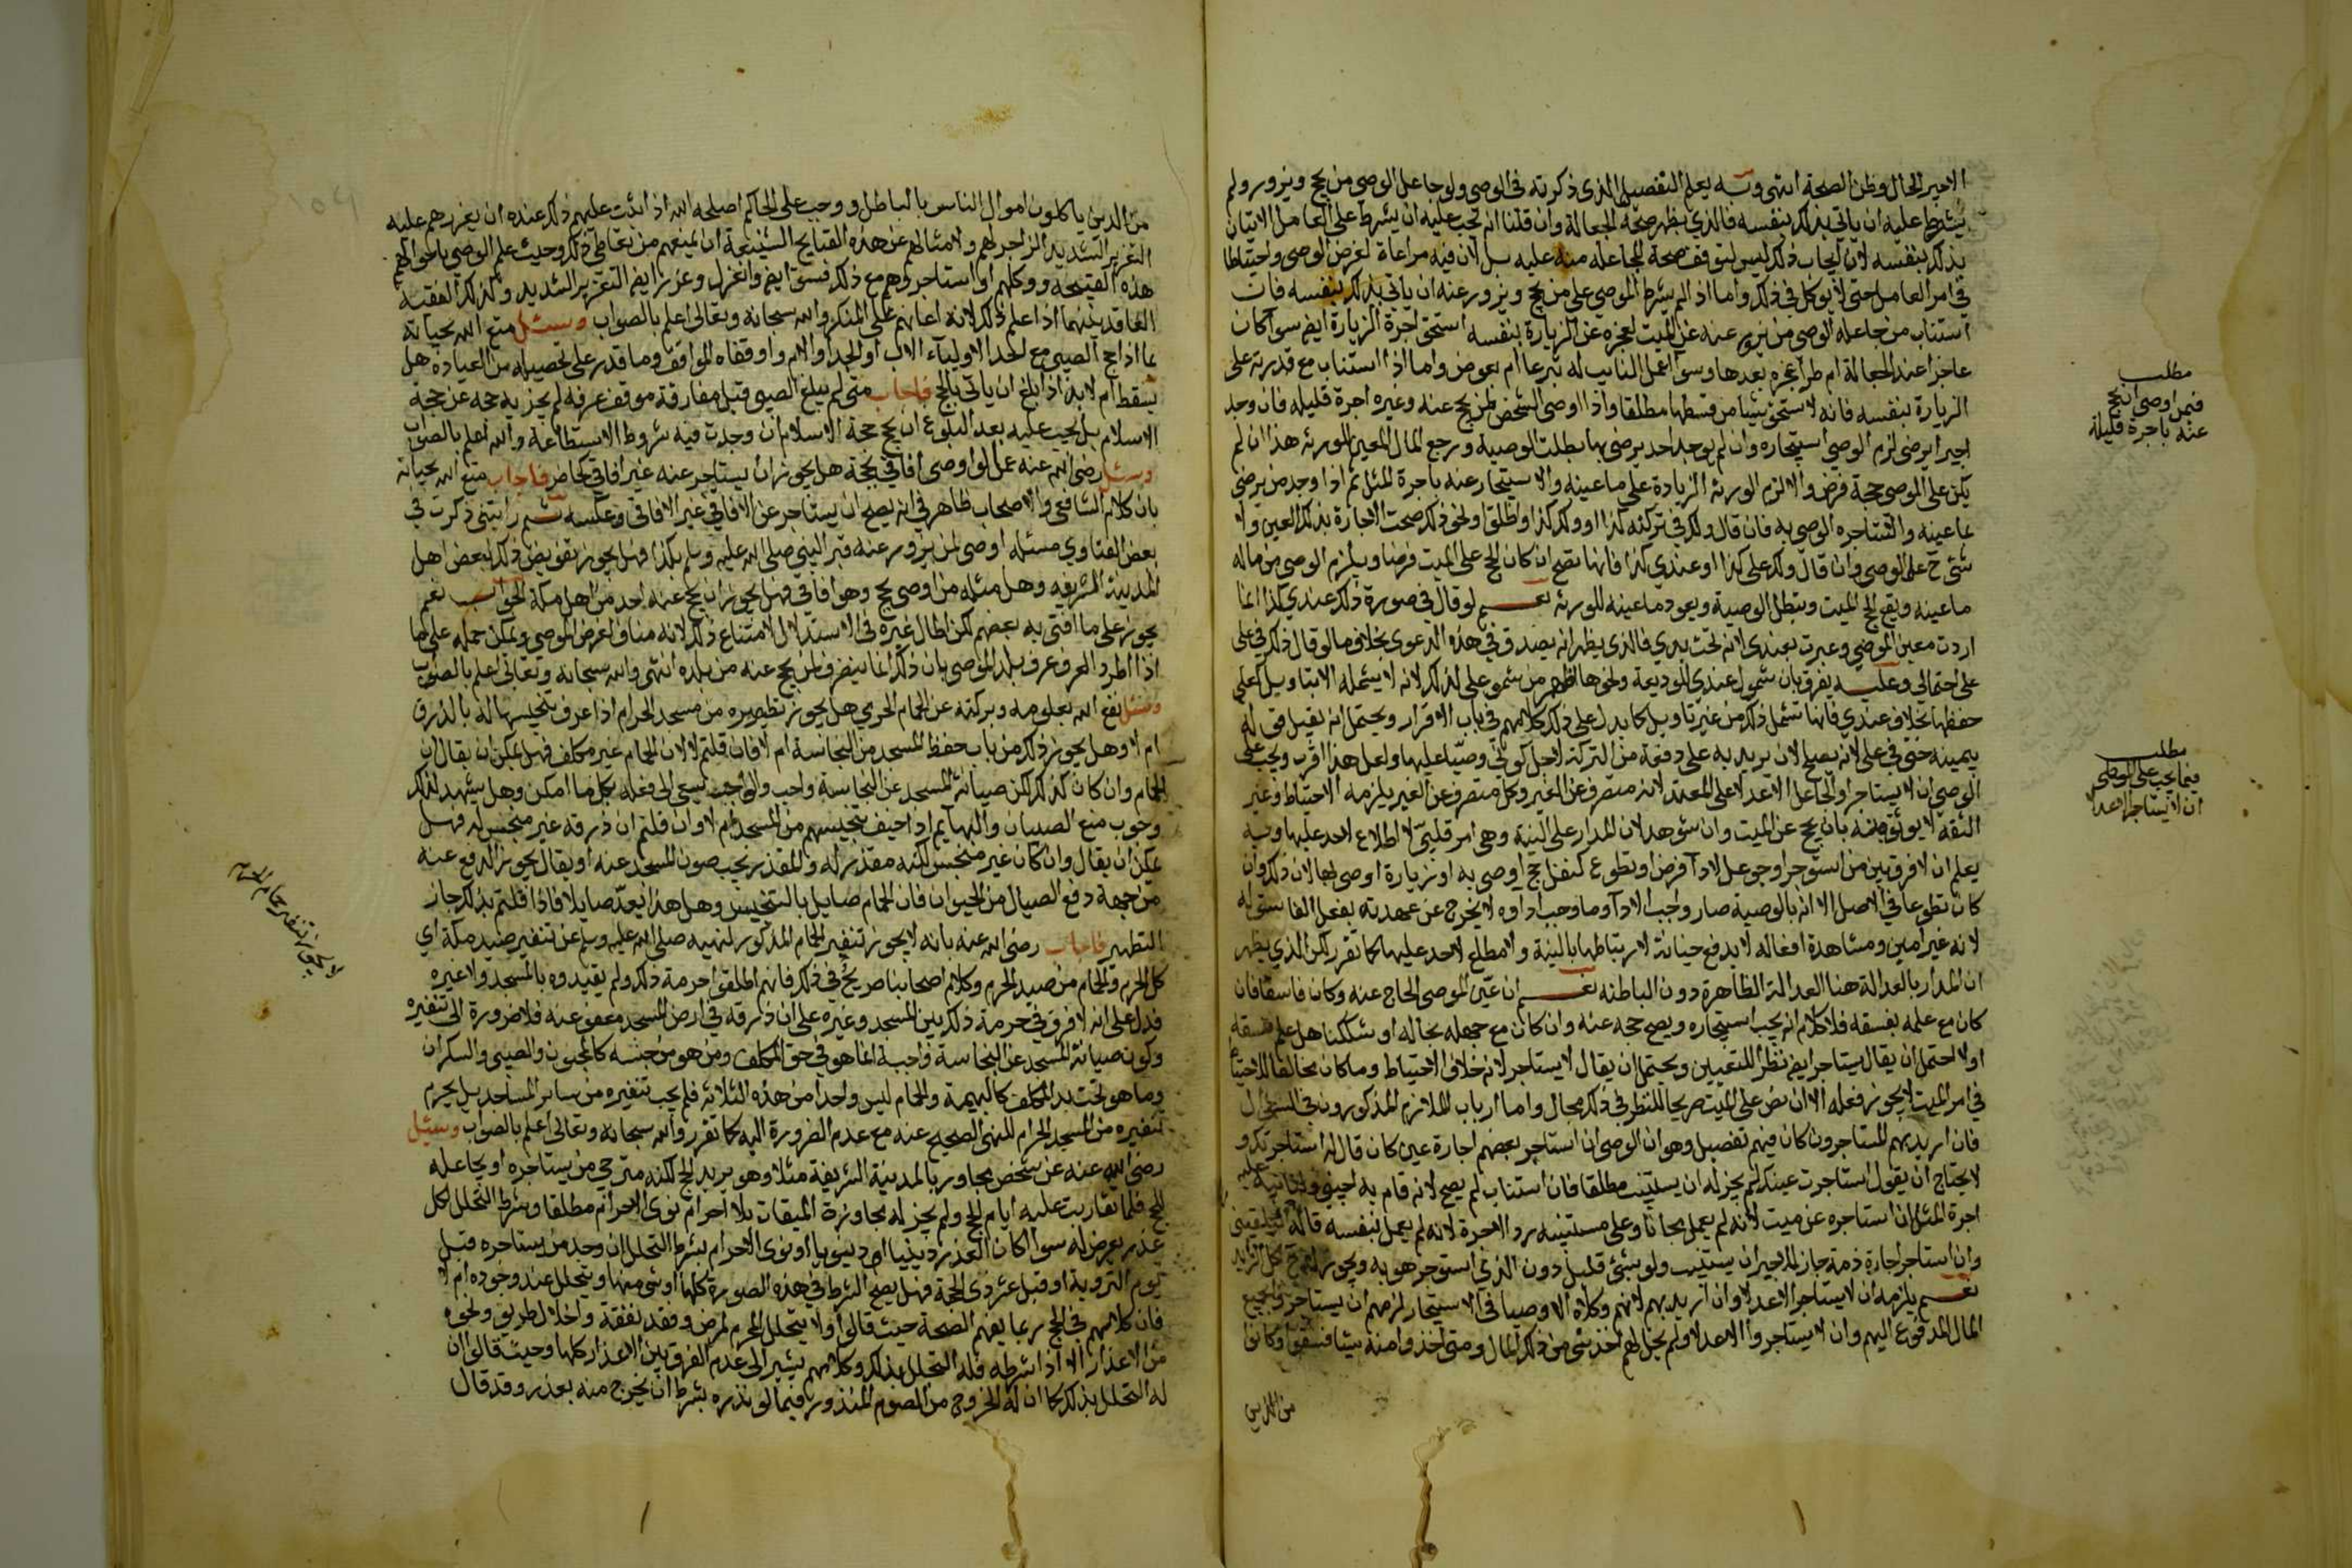 الاجير الحال وظن الصحة انتهى وبه يعلم التفصيل الذى ذكرته فى الوصى ولو جاعل الوصى من يحج ويزور ولم
يشرط عليه ان ياتى بذلك بنفسه فالذي يظهر صحة الجعالة وان قلنا انه يجب عليه ان يشرط على العامل الاتيان
بذلك بنفسه لان ايجاب ذلك ليس لتوقف صحة المجاعلة منه عليه بل لان فيه مراعاة لغرض الموصى واحتياطا
في امر العامل حتى لا يوكل في ذلك واما اذا لم يشرط الموصي على من يحج ويزور عنه ان ياتي بذلك بنفسه فان
استناب من جاعله الوصى من يزور عنه عن الميت لعجزه عن الزيارة بنفسه استحق اجرة الزيارة ايضا سوا كان
عاجزا عند الجعالة ام طرا عجزه بعدها وسوا عمل النايب له تبرعا ام بعوض واما اذا استناب مع قدرته على
الزيارة بنفسه فانه لا يستحق شيا من قسطها مطلقا واذا اوصى الشخص لمن يحج عنه وغيره اجرة قليله فان وجد
اجيرا يرضى لزم الوصي استيجاره وان لم يوجد احد يرضى بها بطلت الوصية ورجع المال المعين للورثه هذا ان لم
يكن على الموصى حجة فرض والا لزم الورثه الزيادة على ما عينه والاستيجار عنه باجرة المثل ثم اذا وجد من يرضى
بما عينه واستاجره الوصى به فان قال ولك في تركته كذا او ولك كذا واطلق ونحو ذلك صحت الاجارة بذلك العين ولا
شئ ح على الوصى وان قال ولك على كذا او عندي كذا فانها تصح ان كان الحج على الميت فرضا ويلزم الوصى من ماله
ما عينه ويقع الحج للميت وتبطل الوصية ويعود ما عينه للورثه نعم لو قال في صورة ذلك عندي كذا انما
اردت معين الموصي وعبرت بعندى لانه تحت يدي فالذى يظهر انه يصدق في هذه الدعوى بخلاف ما لو قال ذلك في على
على احتمالي وعليه يفرق بان شمول عندي للوديعة ونحوها اظهر من شمو على لذلك لانه لا يشمله الا بتاويل اعلى
حفظها بخلاف عندي فانها تشمل ذلك من غير تاويل كما يدل على ذلك كلامهم في باب الاقرار ويحتمل انه يقبل فى
يمينه حتى في على لانه يصلح لان يريد به على دفعه من التركة لاجل كوني وصيا عليها ولعل هذا اقرب ويجب على
الوصى ان لا يستاجر او يجاعل الا عدلا على المعتمد لانه متصرف عن الغير وكل متصرف عن الغير يلزمه الاحتياط وغير
الثقة لا يوثق منه بان يحج عن الميت وان شوهد لان المدار على النية وهى امر قلبي لا اطلاع لاحد عليها وبه
يعلم ان لا فرق بين من استوجر او جوعل لادآ فرض او تطوع كنفل حج اوصى به او زيارة اوصى بها لان ذلك وان
كان تطوعا في الاصل الا انه بالوصية صار واجب الادآ وما وجب اداوه لا يخرج عن عهدته بفعل الفاسق له
لانه غير امين ومشاهدة افعاله لا يدفع خيانة لارتباطها بالنية ولا مطلع لاحد عليها كما تقرر لكن الذي يظهر
ان المدار بالعدالة هنا العدالة الظاهرة دون الباطنه نعم ان عين الموصى الحاج عنه وكان فاسقا فان
كان مع علمه بفسقه فلا كلام انه يجب استيجاره ويصح حجه عنه وان كان مع جهله بحاله او شككنا هل علم فسقه
اولا احتمل ان يقال يستاجر ايضا نظرا للتعيين ويحتمل ان يقال لا يستاجر لانه خلاف الاحتياط وما كان مخالفا للاحتياط
في امر الميت لا يجوز فعله الا ان نص على الميت صريحا للنظر في ذلك مجال واما ارباب الملازم المذكورون في السوال
فان اريد بهم المستاجرون كان فيهم تفصيل وهو ان الوصى ان استاجر بعضهم اجارة عين كان قال له استاجرتك و
لا يحتاج ان يقول استاجرت عينك لم يجز له ان يستنيب مطلقا فان استناب لم يصح لانه قام به اجنبي
اجرة المثل ان استاجره عن ميت لانه لم يعمل مجانا وعلى مستنيبه رد الاجرة لانه لم يعمل بنفسه قاله
وان استاجر اجارة ذمة جاز للاجير ان يستنيب ولو بشئ قليل دون الذي استوجر هو به ويجوز له
نعم يلزمه ان لا يستاجر الا عدلا وان اريد بهم لانهم وكلاء الاوصيا في الاستيجار لزمهم ان يستاجروا بجميع
المال المدفوع اليهم وان لا يستاجروا الا عدلا ولم يحل لهم اخذ شى من ذلك المال ومتى اخذوا منه شيا فسقوا وكانوا
من الذين
مطلب
فيمن اوصى ان يحج
عنه باجرة قليلة
مطلب
فيما يجب على الوصى
ان لا يستاجر الا عدلا
من الذين ياكلون اموال الناس بالباطل ووجب على الحاكم اصلحه الله اذا ثبت عليهم ذلك عنده ان يعزرهم عليه
التعزير الشديد الزاجر لهم ولامثالهم عن هذه القبايح الشنيعة ان يمنعهم من تعاطى ذلك وحيث علم الوصى باحوالهم
هذه القبيحة ووكلهم او استاجروهم مع ذلك فسق ايضا وانعزل وعزر ايضا التعزير الشديد وكذلك الفقيه
العاقد بينهما اذا علم ذلك لانه اعانهم على المنكر والله سبحانه وتعالى اعلم بالصواب وسئل متع الله بحياته
عما اذا حج الصبى مع احد الاولياء الاب او الجد او الام واوقفاه المواقف وما قدر على تحصيله من العبادة هل
يسقط ام لا بد اذا بلغ ان ياتي بالحج فاجاب متى لم يبلغ الصبى قبل مفارقة موقف عرفه لم يجز به حجه عن حجة
الاسلام بل يجب عليه بعد البلوغ ان يحج حجة الاسلام ان وجدت فيه شروط الاستطاعة والله اعلم بالصواب
وسئل رضى الله عنه عما لو اوصى افاقي بحجة هل يجوز ان يستاجر عنه غير افاقي كحاضر فاجاب متع الله بحياته
بان كلام الشافعي والاصحاب ظاهر في انه يصح ان يستاجر عن الافاقي غير الافاقى وعكسه ثم رايتني ذكرت في
بعض الفتاوي مسئله اوصى لمن يزور عنه قبر النبي صلى الله عليه وسلم بكذا فهل يجوز تفويض ذلك لبعض اهل
المدينة الشريفه وهل مثله من اوصى بحج وهو افاقي فهل يجوز ان يحج عنه احد من اهل مكة الجواب نعم
يجوز على ما افتى به بعضهم لكن اطال غيره في الاستدلال لامتناع ذلك لانه مناف لغرض الموصي ويمكن حمله على ما
اذا اطرد العرف عرف بلد الموصى بان ذلك انما ينصرف لمن يحج عنه من بلده انتهى والله سبحانه وتعالى اعلم بالصواب
وسئل نفع الله بعلومه وبركته عن الحمام الحرمي هل يجوز تطييره من مسجد الحرام اذا عرف تنجيسها له بالذرق
ام لا وهل يجوز ذلك من باب حفظ المسجد من النجاسة ام لا فان قلتم لا لان الحمام غير مكلف فهل يمكن ان يقال ان
الحمام وان كان كذلك لكن صيانة المسجد عن النجاسة واجب والواجب يسعى الى فعله بكل ما امكن وهل يشهد لذلك
وجوب منع الصبيان والبهايم اذا خيف تنجيسهم من المسجد ام لا وان قلتم ان ذرقه غير منجس له فهل
يمكن ان يقال وان كان غير منجس لكنه مقذر له والمقذر يجب صون المسجد عنه او يقال يجوز الدفع عنه
من جهة دفع الصيال من الحيوان فان الحمام صايل بالتنجيس وهل هذا يعد صايلا فاذا قلتم بذلك جاز
التطهير فاجاب رضى الله عنه بانه لا يجوز تنفير الحمام المذكور لنهيه صلى الله عليه وسلم عن تنفير صيد مكة اي
كل الحرم والحمام من صيد الحرم وكلام اصحابنا صريح في ذلك فانهم اطلقوا حرمة ذلك ولم يقيدوه بالمسجد ولا غيره
فدل على انه لا فرق في حرمة ذلك بين المسجد وغيره على ان ذرقه في ارض المسجد معفو عنه فلا ضرورة الى تنفيره
وكون صيانة المسجد عن النجاسة واجبة انما هو في حق المكلف ومن هو من جنسه كالمجنون والصبى والسكران
وما هو تحت يد المكلف كالبهيمة والحمام ليس واحدا من هذه الثلاثه فلم يجب تنفيره من ساير المساجد بل يحرم
تنفيره من المسجد الحرام للنهي الصحيح عنه مع عدم الضرورة اليه كما تقرر والله سبحانه وتعالى اعلم بالصواب وسئل
رضى الله عنه عن شخص مجاور بالمدينة الشريفة مثلا وهو يريد الحج لكنه مترجي من يستاجره او يجاعله
للحج فلما تقاربت عليه ايام الحج ولم يجز له مجاوزة الميقات بلا احرام نوى الاحرام مطلقا وشرط التحلل لكل
عذر يعرض له سوا كان العذر دينيا او دنيويا او نوى الاحرام بشرط التحلل ان وجد من يستاجره قبل
يوم التروية او قبل عشر ذى الحجة فهل يصح الشرط في هذه الصورة كلها او شى منها ويتحلل عند وجوده ام لا
فان كلامهم في الحج ربما يفهم الصحة حيث قالوا ولا يتحلل المحرم لمرض وفقد نفقة واضلال طريق ونحوه
من الاعذار الا اذا شرطه فله التحلل بذلك وكلامهم يشير الى عدم الفرق بين الاعذار كلها وحيث قالوا ان
له التحلل بذلك كما ان له الخروج من الصوم المنذور فيما لو نذره بشرط ان يخرج منه بعذر وقد قال
لا يجوز تنفير حمام الحرم